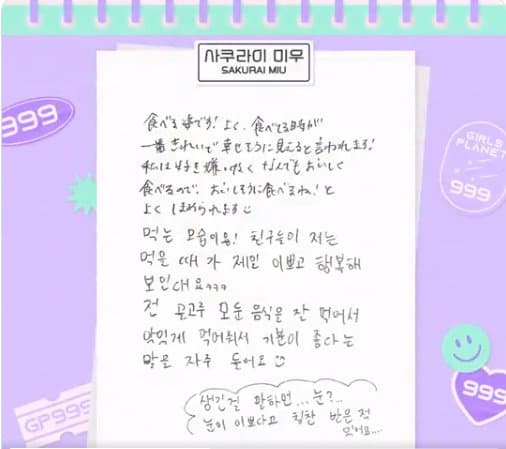 사쿠라이 미우
SAKURAI MIU
999
GIRLS PLANET
999
食べる姿です!よく、食べてる時が
一番きれいで幸せそうに見えると言われます!
私は好き嫌いなくなんでもおいしく
食べるので、おいしそうに食べるね!と
よくほめられます☺
먹는 모습이용! 친구들이 저는
먹을 때가 제일 이쁘고 행복해
보인대요ㅋㅋㅋ
전 골고루 모둔 음식을 잘 먹어서
맛있게 먹어줘서 기분이 좋다는
말을 자주 듣어요☺
생긴걸 말하면...눈?...
눈이 이쁘다고 칭찬 받은 적
있어요....
GP999
999